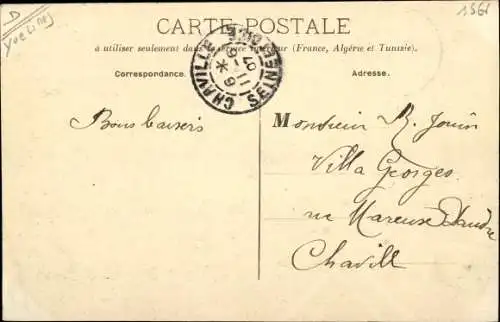 D
Yvelines
1561
CARTE POSTALE
à utiliser seulement dans le service intérieur (France, Algérie et Tunisie).
CHAVILLE SEINE ET OISE
* 9 - 11 07
Correspondance.
Adresse.
Bons baisers
Monsieur R. Jouin
Villa Georges
rue
Chaville